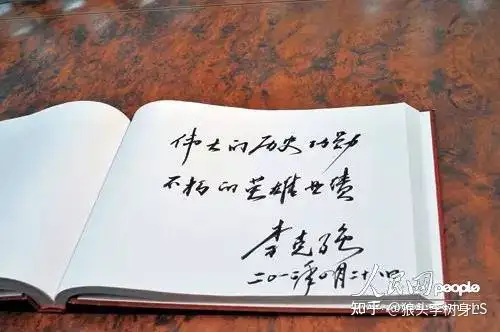 伟大的历史功勋
不朽的英雄业绩
李克强
二〇一二年四月二十八日
人民网 people
知乎 @狼头李树身